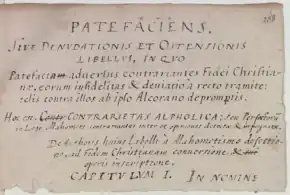 PATEFACIENS.
SIVE DENVDATIONIS ET OSTENSIONIS
LIBELLVS, IN QVO
Patefaciam adversus contrariantes Fidei Christia-
næ, eorum infidelitas & deviatio à recto tramite:
telis contra illos ab ipso Alcorano depromptis.
Hoc est CONTRARIETAS ALPHOLICA: seu
in Lege Mahometi contrarietates inter se
De Authore huius Libelli à Mahometismo defectio-
ne, ad Fidem Christianam conversione, &
operis inscriptione.
CAPITVLVM I. IN NOMINE